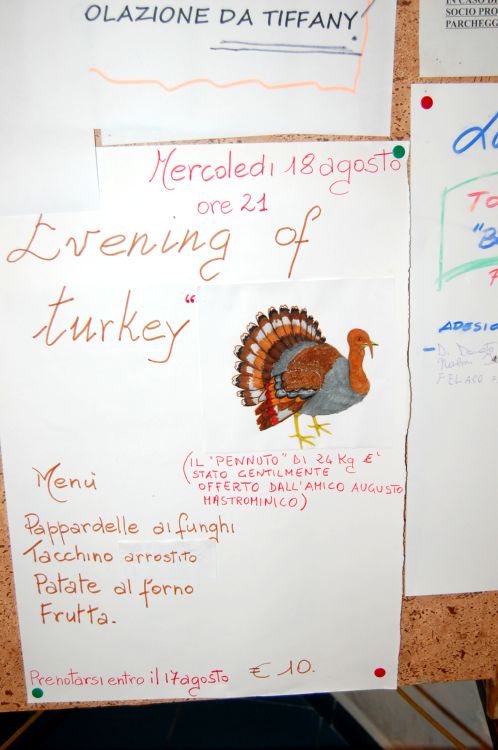 OLAZIONE DA TIFFANY
IN CASO DI
SOCIO PRO
PARCHEGG
Mercoledì 18 agosto
ore 21
Evening of
turkey"
(IL "PENNUTO" DI 24 Kg E'
STATO GENTILMENTE
OFFERTO DALL'AMICO AUGUSTO
MASTROMINICO)
Menù
Pappardelle ai funghi
Tacchino arrostito
Patate al forno
Frutta.
Prenotarsi entro il 17 agosto € 10.
TO
"B
ADESIO
- D. Donato
FELACO